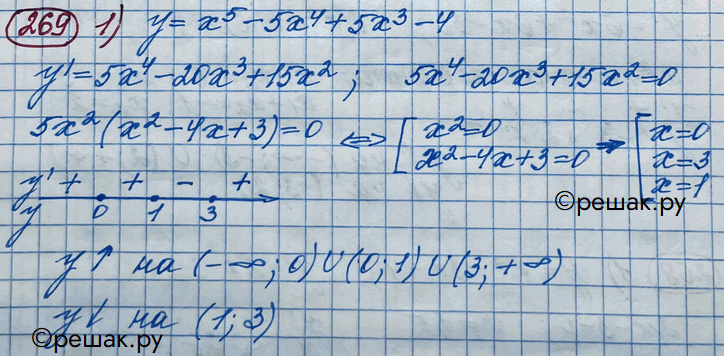 269 1) y = x⁵ - 5x⁴ + 5x³ - 4
y' = 5x⁴ - 20x³ + 15x² ; 5x⁴ - 20x³ + 15x² = 0
5x² (x² - 4x + 3) = 0 ⇔ [ x² = 0 → [ x = 0
x² - 4x + 3 = 0 x = 3
x = 1
©решак.ру
y' + + - +
y 0 1 3
y↑ на (-∞; 0) ∪ (0; 1) ∪ (3; +∞)
y↓ на (1; 3)
©решак.ру